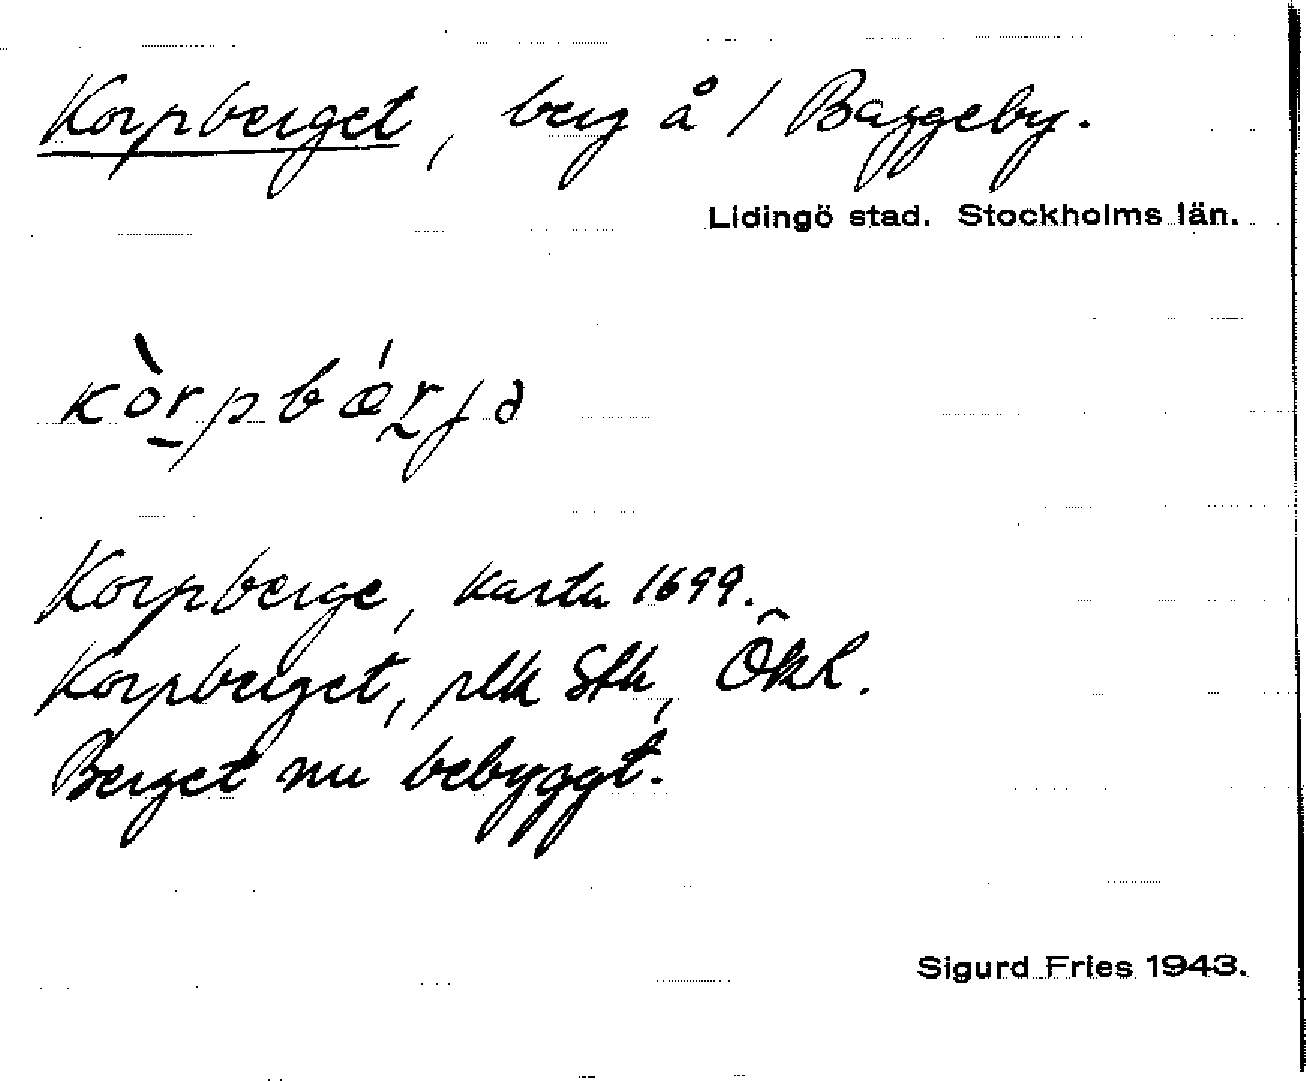 Korpberget, berg å / Baggeby.
Lidingö stad. Stockholms län.
kòrpbǽrjə
Korpberge, karta 1699.
Korpberget, plk Sth, Ökl.
Berget nu bebyggt.
Sigurd Fries 1943.